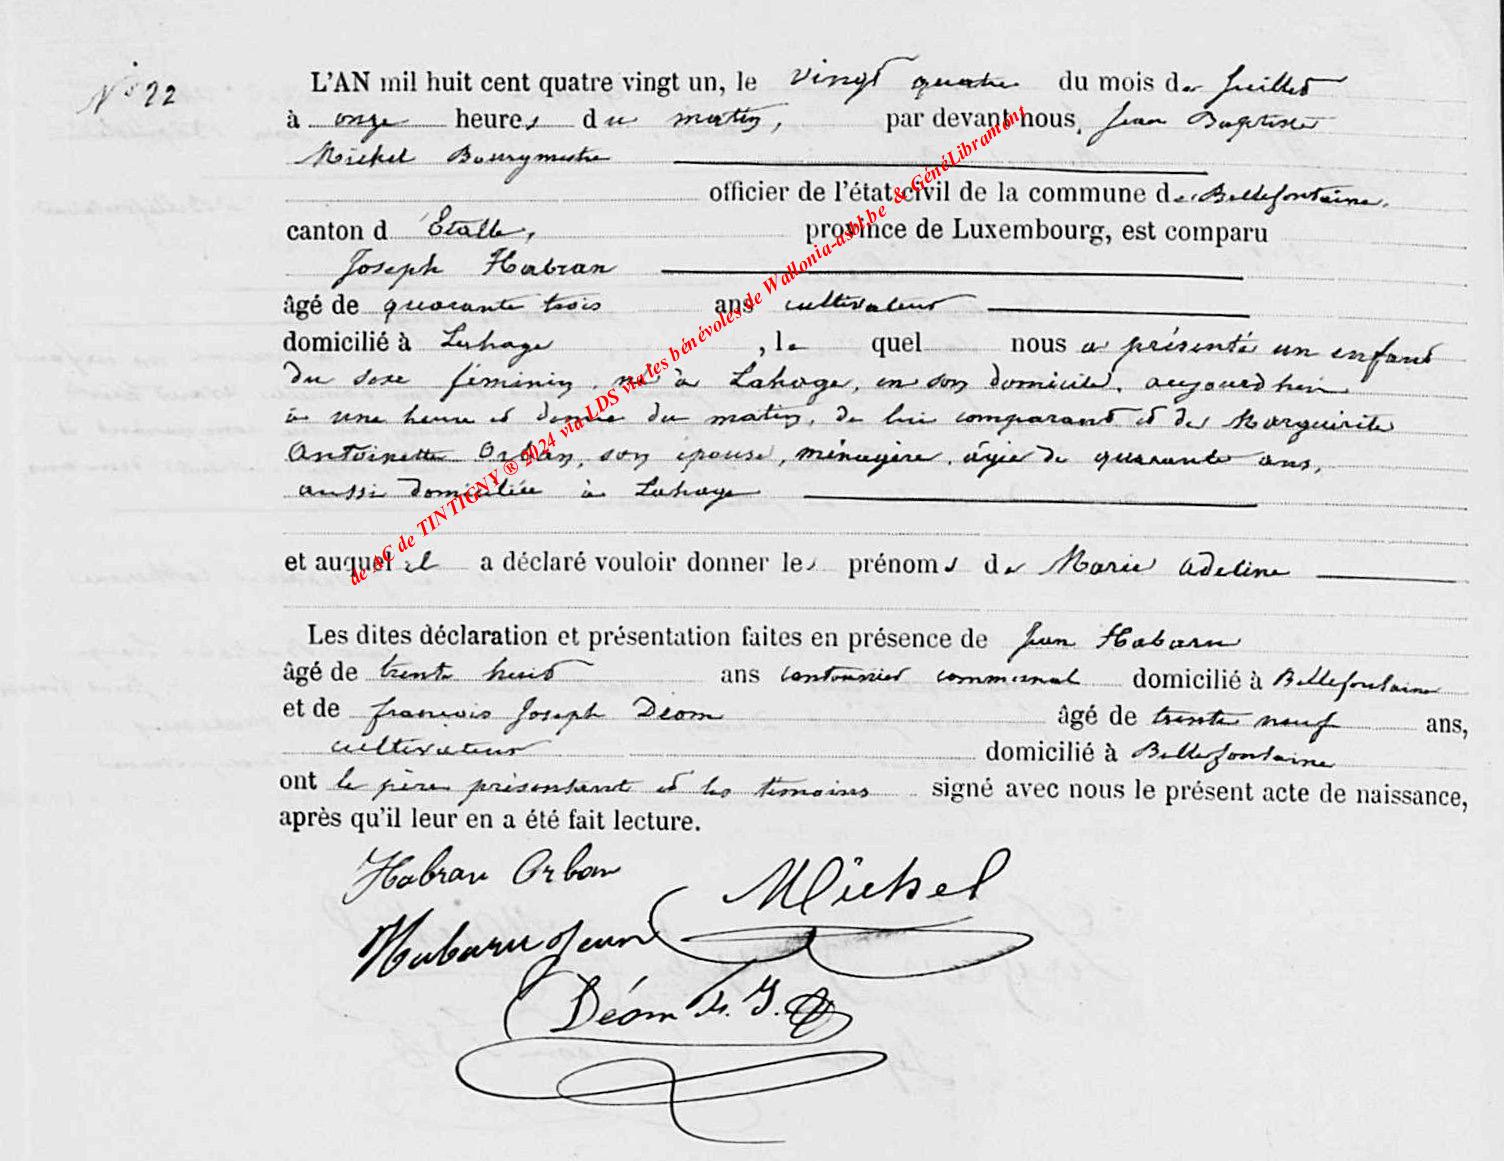 N° 22
L'AN mil huit cent quatre vingt un, le vingt quatre du mois de Juillet
à onze heures du matin, par devant nous, Jean Baptiste
Michel Bourgmestre
officier de l'état civil de la commune de Bellefontaine,
canton d'Etalle, province de Luxembourg, est comparu
Joseph Habran
âgé de quarante trois ans cultivateur
domicilié à Lahage, le quel nous a présenté un enfant
du sexe féminin, né à Lahage, en son domicile, aujourd'hui
à une heure et demie du matin, de lui comparant et de Marguerite
Antoinette Orban, son épouse, ménagère, âgée de quarante ans,
aussi domiciliée à Lahage
et auquel il a déclaré vouloir donner les prénoms de Marie Adeline
Les dites déclaration et présentation faites en présence de Jean Habaru
âgé de trente huit ans cantonnier communal domicilié à Bellefontaine
et de françois Joseph Déom âgé de trente neuf ans,
cultivateur domicilié à Bellefontaine
ont le père présentant et les témoins signé avec nous le présent acte de naissance,
après qu'il leur en a été fait lecture.
Habran Orban
Michel
Habaru Jean
Déom F. J.
de AC de TINTIGNY ® 2024 via LDS via les bénévoles de Wallonia-asbl.be & GénéLibramont